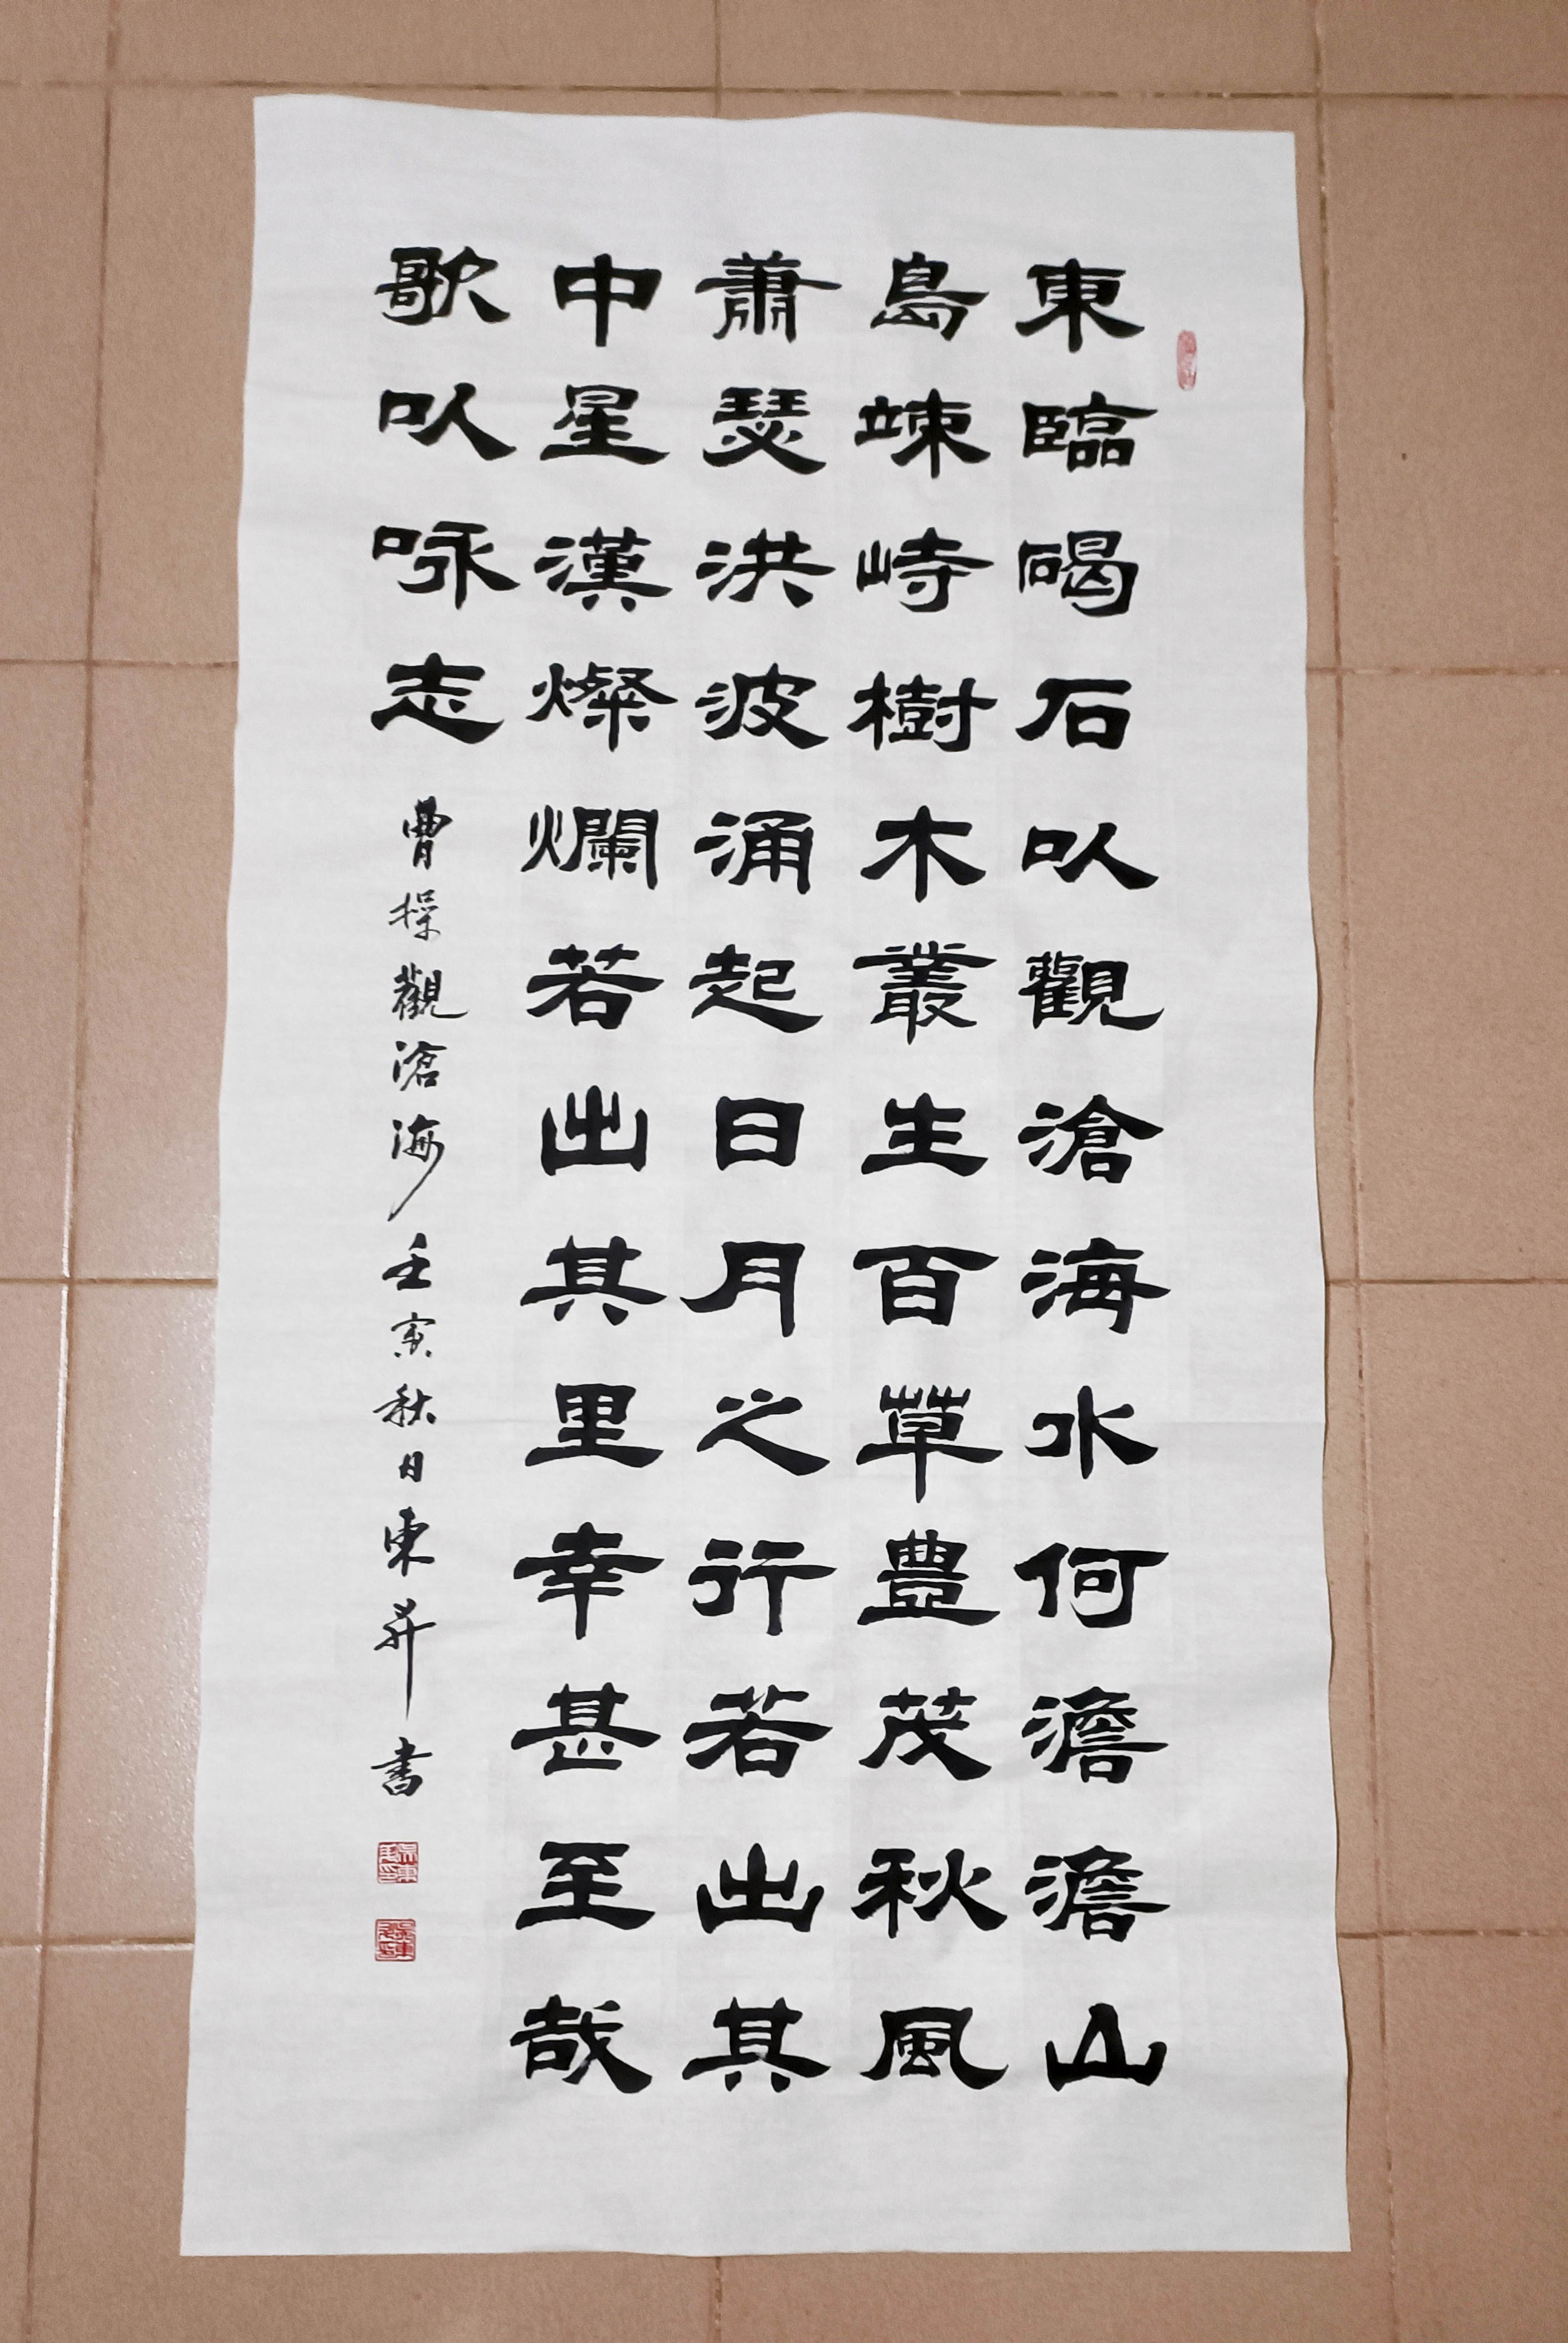 東臨碣石以觀滄海水何澹澹山
島竦峙樹木叢生百草豊茂秋風
蕭瑟洪波涌起日月之行若出其
中星漢燦爛若出其里幸甚至哉
歌以咏志
曹操觀滄海壬寅秋日東昇書